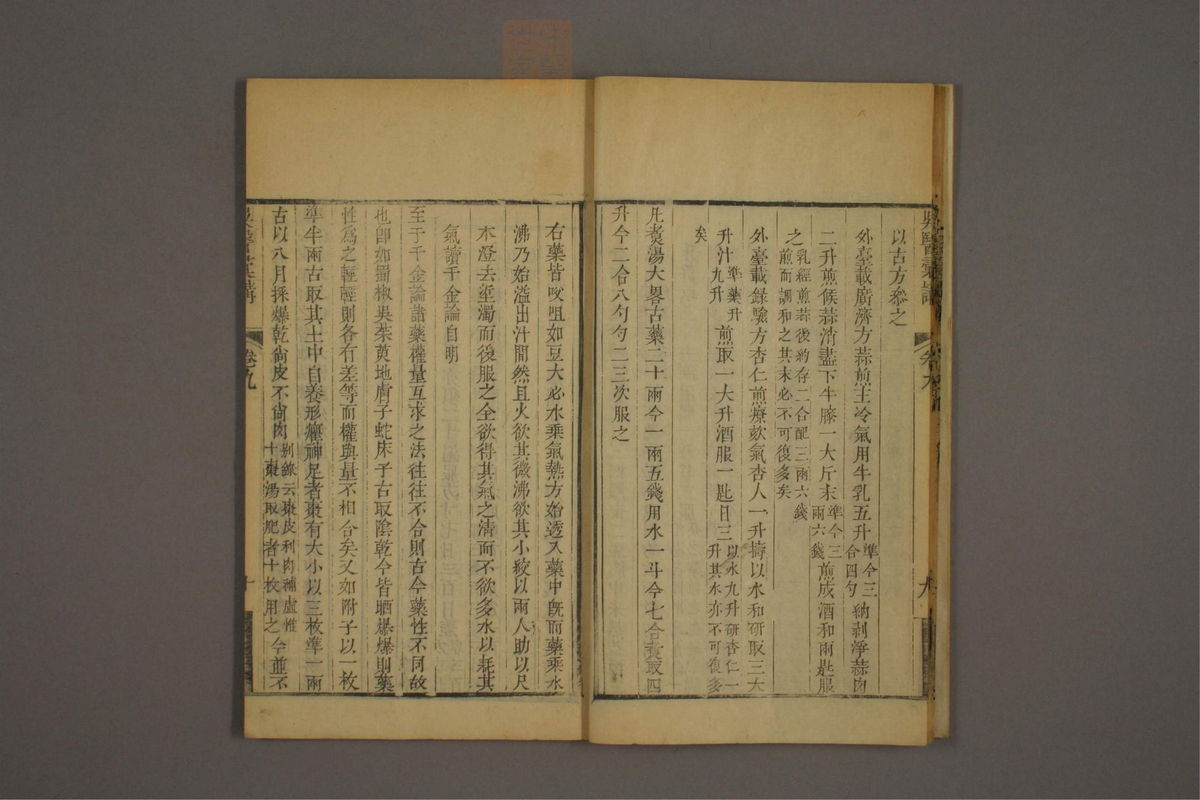 以古方叅之
外臺載廣濟方蒜煎主冷氣用牛乳五升準今三合四勺納剥淨蒜肉
二升煎候蒜消盡下牛膝一大斤末準今三兩六錢煎成酒和兩匙服
之乳經煎蒜後約存二合配三兩六錢煎而調和之其末必不可復多矣
外臺載錄驗方杏仁煎療欬氣杏人一升擣以水和研取三大
升汁準藥升九升煎取一大升酒服一匙日三以水九升研杏仁一升其水亦不可復多
矣
凡煑湯大畧古藥二十兩今一兩五錢用水一斗今七合煑取四
升今二合八勺勺二三次服之
右藥皆㕮咀如豆大必水乘氣熱方始透入藥中旣而藥乘水
沸乃始溢出汁間然且火欲其微沸欲其小絞以兩人助以尺
木澄去垽濁而後服之全欲得其氣之清而不欲多水以耗其
氣讀千金論自明
至于千金論諸藥權量互求之法往往不合則古今藥性不同故
也卽如蜀椒吳茱萸地膚子蛇床子古取陰乾今皆晒爆爆則藥
性爲之輕輕則各有差等而權與量不相合矣又如附子以一枚
準半兩古取其土中自養形癯神足者棗有大小以三枚準一兩
古以八月採爆乾尙皮不尙肉別錄云棗皮利肉補虛惟十棗湯取肥者十枚用之今並不
吳醫彙講
卷九
十
吳醫彙講
卷九
九